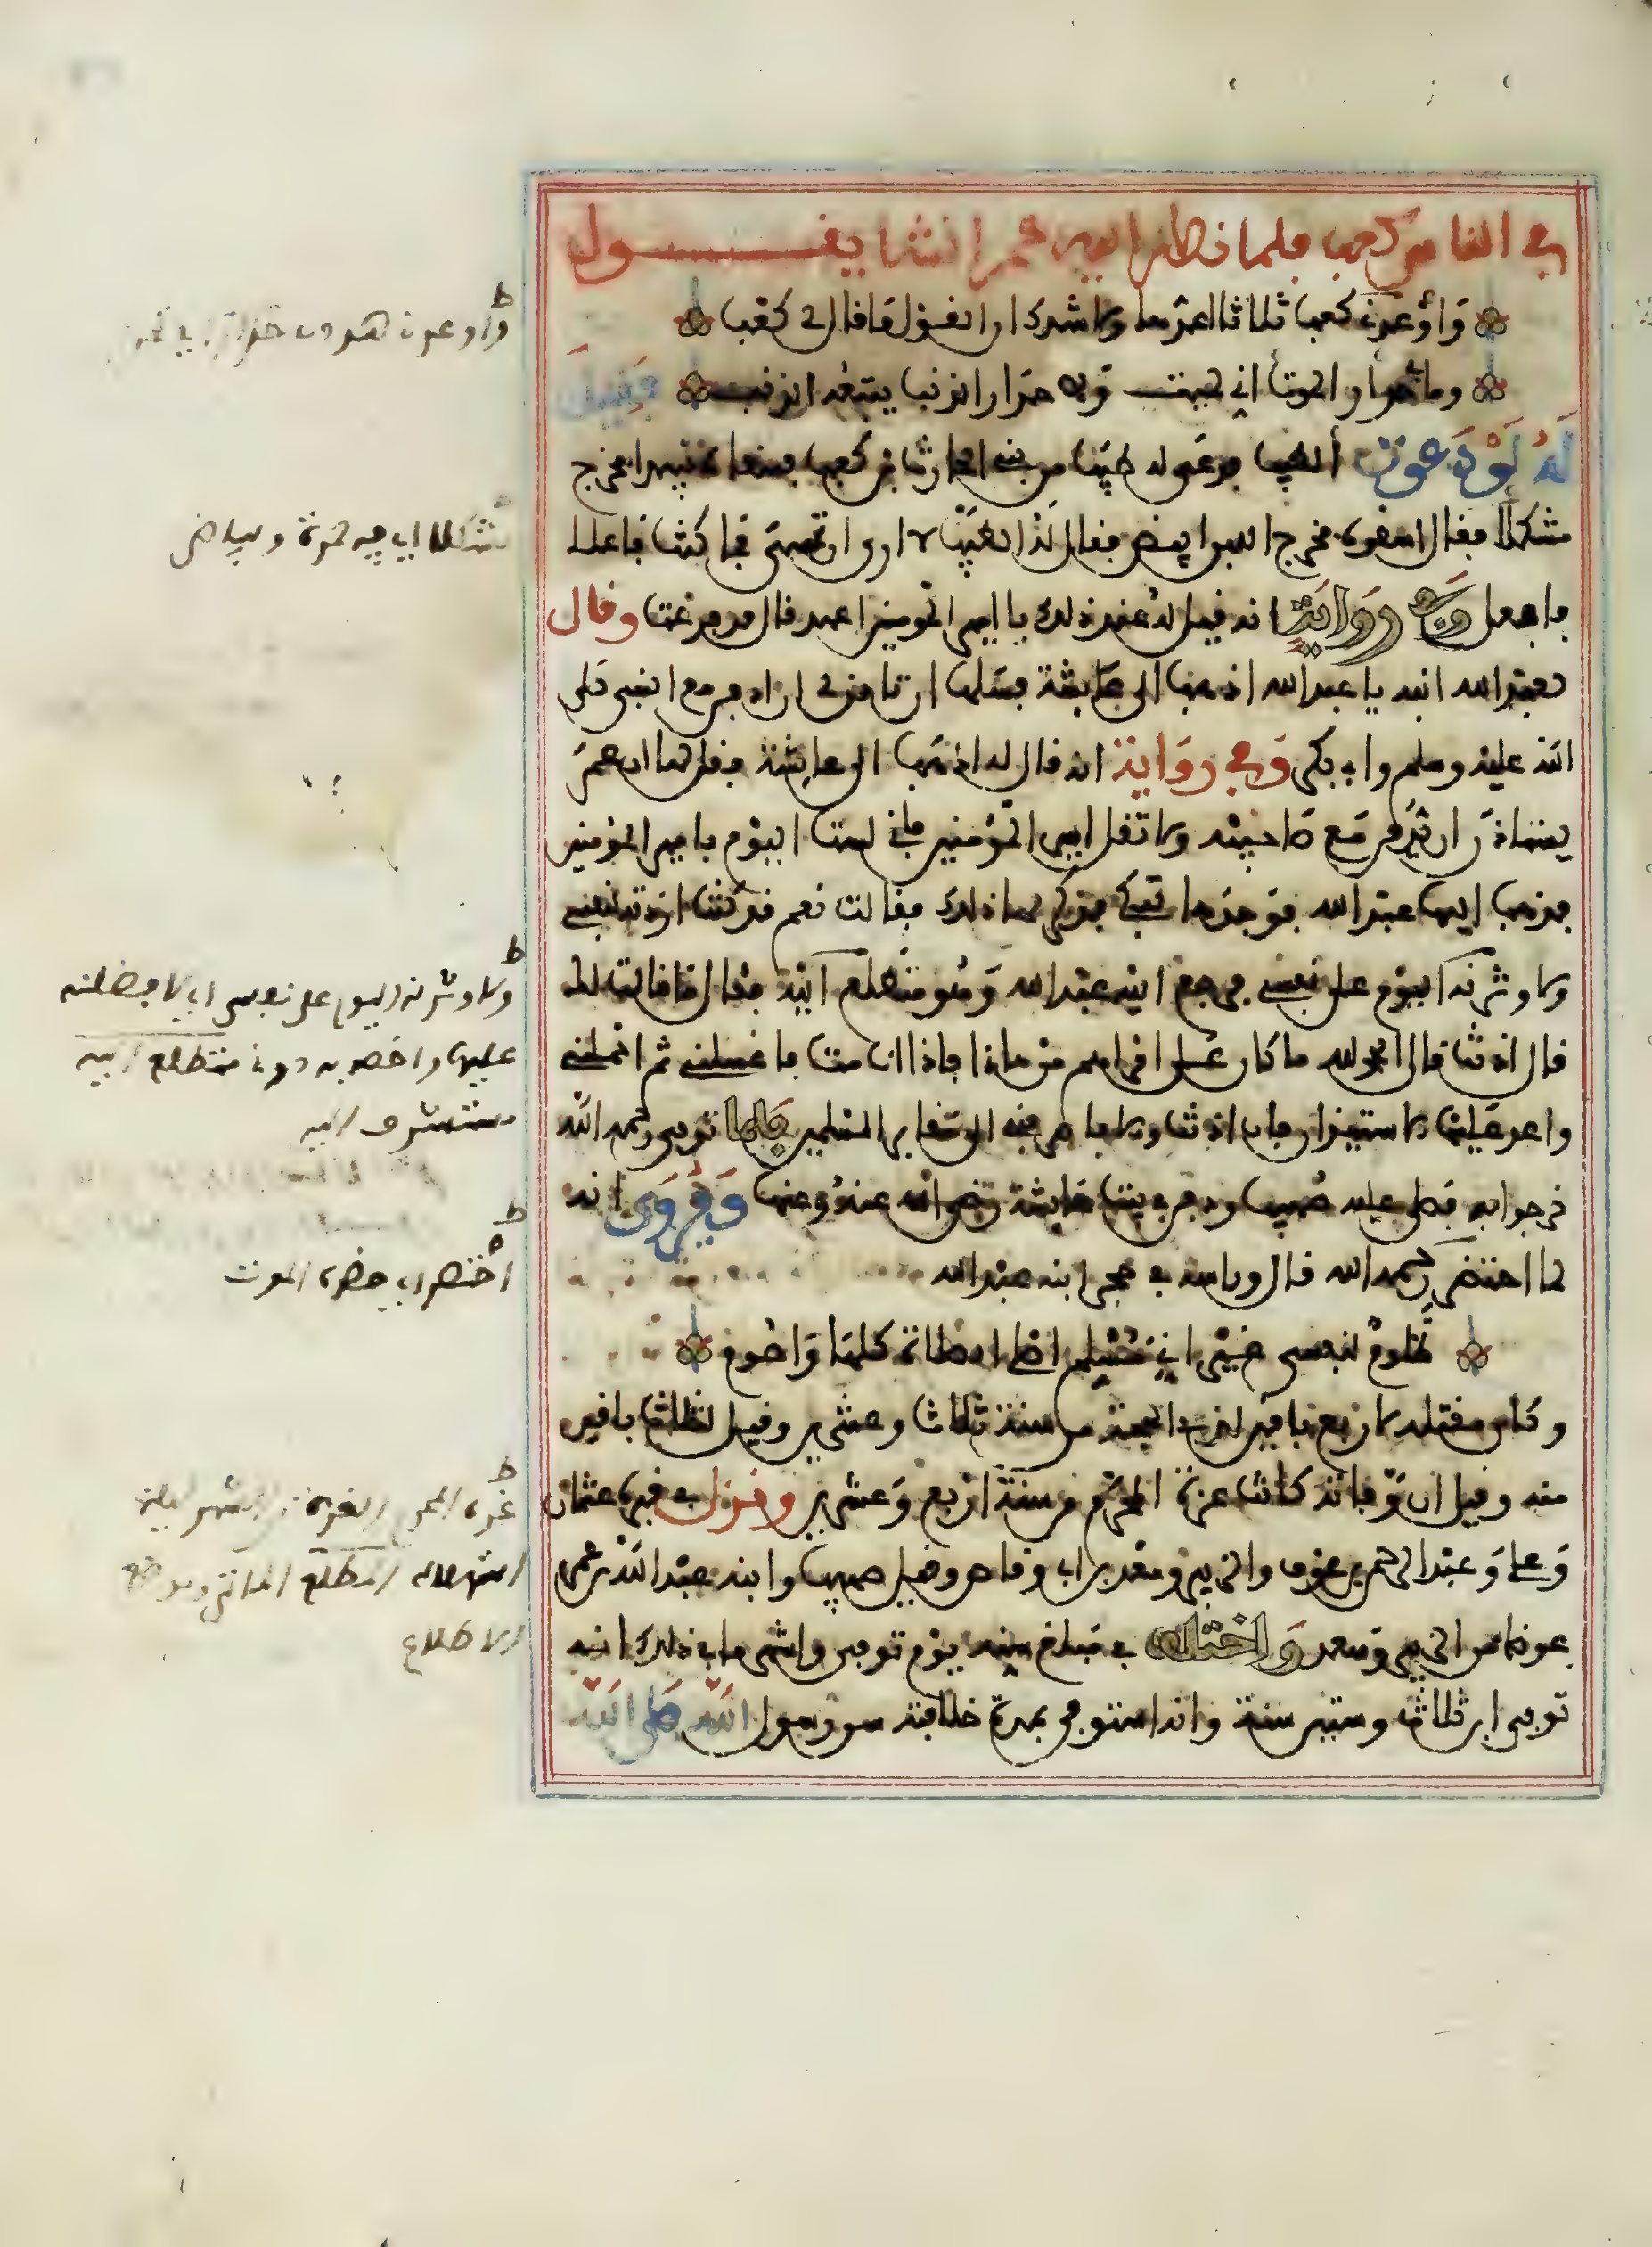 في الناس كعب فلما نظر اليه عمر انشا يقول
وَاوْعَدَني كعب ثلاثا اعدها ولا شك ان القول ما قال لي كعب
وما بي حذار الموت اني لميت ولكن حذار الذنب يتبعه الذنب فقيل
له لو دعوت الطبيب فدعي له طبيب من بني الحارث بن كعب فسقاه نبيذا فخرج
مشكلا فقال اسقوه فخرج اللبن ابيض فقال له الطبيب لا ارى ان تمسي فما كنت فاعلا
فافعل وفي رواية انه قيل له عند ذلك يا امير المومنين اعهد قال قد فرغت وقال
لعبد الله ابنه يا عبد الله اذهب الى عايشة فسلها ان تاذن لي ان ادفن مع النبي صلى
الله عليه وسلم وابي بكر وفي رواية انه قال له اذهب الى عايشة فقل لها ان عمر
يستاذن ان يدفن مع صاحبيه ولا تقل امير المؤمنين فاني لست اليوم بامير المؤمنين
فذهب اليها عبد الله فوجدها تبكي فذكر لها ذلك فقالت نعم قد كنت اردته لنفسي
ولاوثرنه اليوم على نفسي فرجع ابنه عبد الله وهو متطلع اليه فقال ما قالت لك
قال اذنت قال الحمد لله ما كان علي اهم من هذا فاذا انا مت فاغسلني ثم احملني
واعد عليها الاستيذان فان اذنت والا فاصرفني الى مقابر المسلمين فلما توفي رحمه الله
خرجوا به فصلى عليه صهيب ودفن في بيت عايشة رضي الله عنه وعنها ويروى انه
لما احتضر رحمه الله قال وراسه في حجر ابنه عبد الله
ظلوم لنفسي غير اني مسلم اصلي الصلاة كلها واصوم
وكان مقتله لاربع باقين لذي الحجة من سنة ثلاث وعشرين وقيل لثلاث باقين
منه وقيل ان وفاته كانت غرة المحرم من سنة اربع وعشرين ونزل في قبره عثمان
وعلي وعبد الرحمن بن عوف والزبير وسعد بن ابي وقاص وقيل صهيب وابنه عبد الله بن عمر
عوضا من الزبير وسعد واختلف في مبلغ سنه يوم توفي واشهر ما في ذلك انه
توفي ابن ثلاث وستين سنة وانه استوفى بمدة خلافته سن رسول الله صلى الله
مشكلا اي فيه حمرة وبياض
ولاوثرنه اليوم على نفسي اي لافضلنه
عليها واخصه به دوني متطلع اليه
مستشرف اليه
احتضر اي حضره الموت
الاطلاع